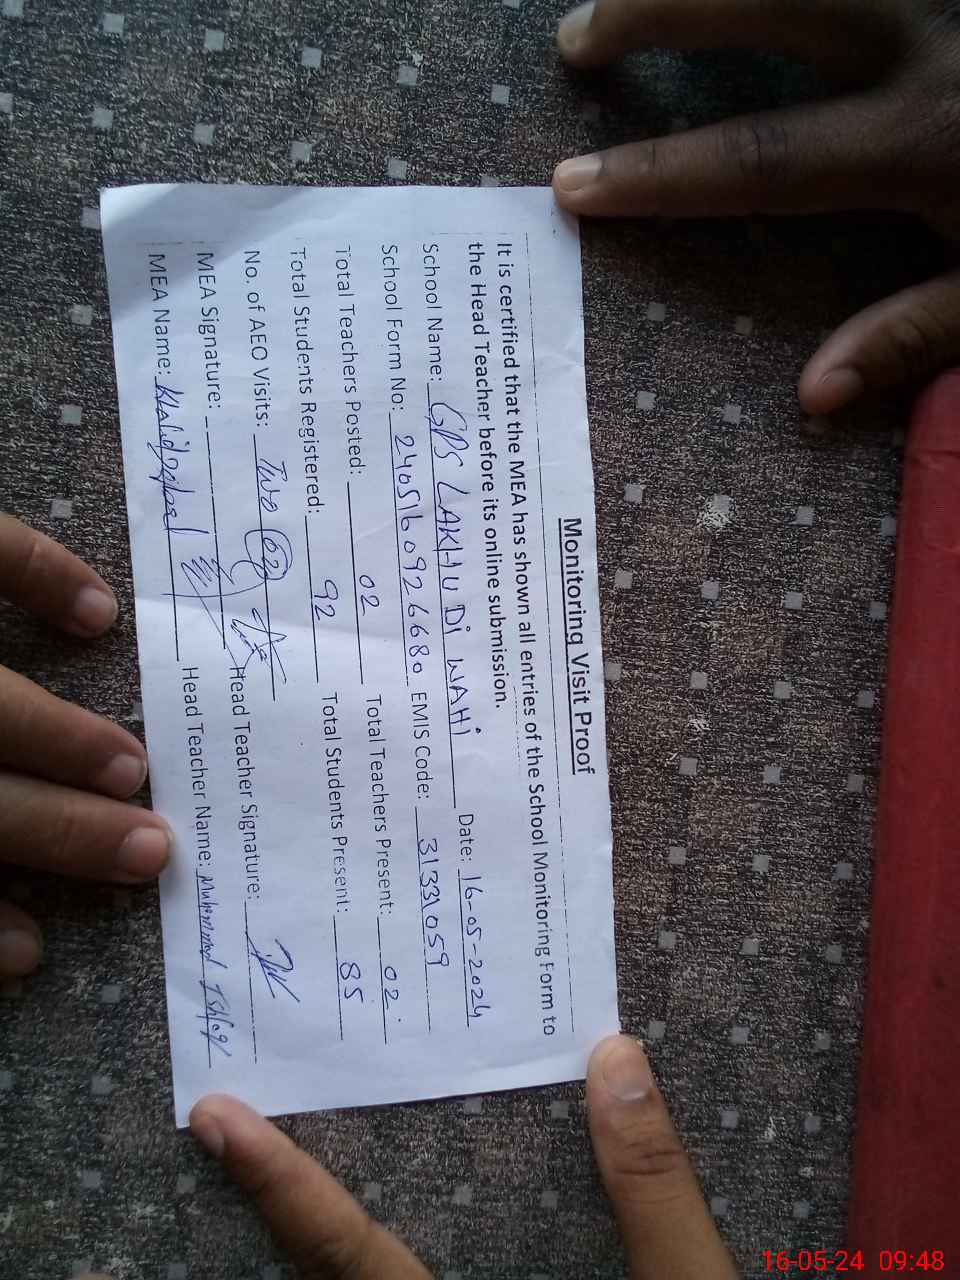 Monitoring Visit Proof
It is certified that the MEA has shown all entries of the School Monitoring Form to
the Head Teacher before its online submission.
School Name: GPS LAKHU Di WAHi Date: 16-05-2024
School Form No: 2405160926680 EMIS Code: 31331059
Total Teachers Posted: 02 Total Teachers Present: 02
Total Students Registered: 92 Total Students Present: 85
No. of AEO Visits: Two (02)
MEA Signature: Head Teacher Signature:
MEA Name: Khalid Iqbal Head Teacher Name: Muhammad Ishfaq
16-05-24 09:48